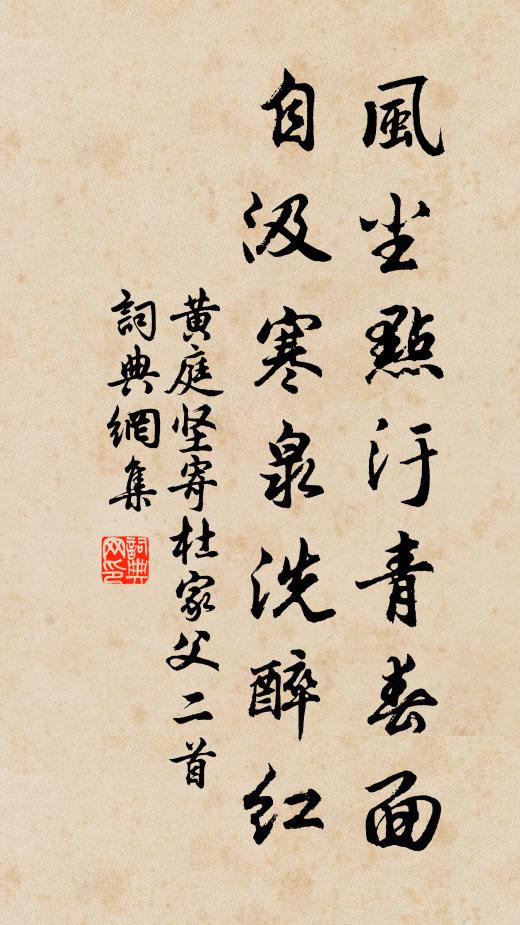 風尘點汙青春面
自汲寒泉洗醉红
黄庭坚寄杜家父二首
詞典網集
詞典网印